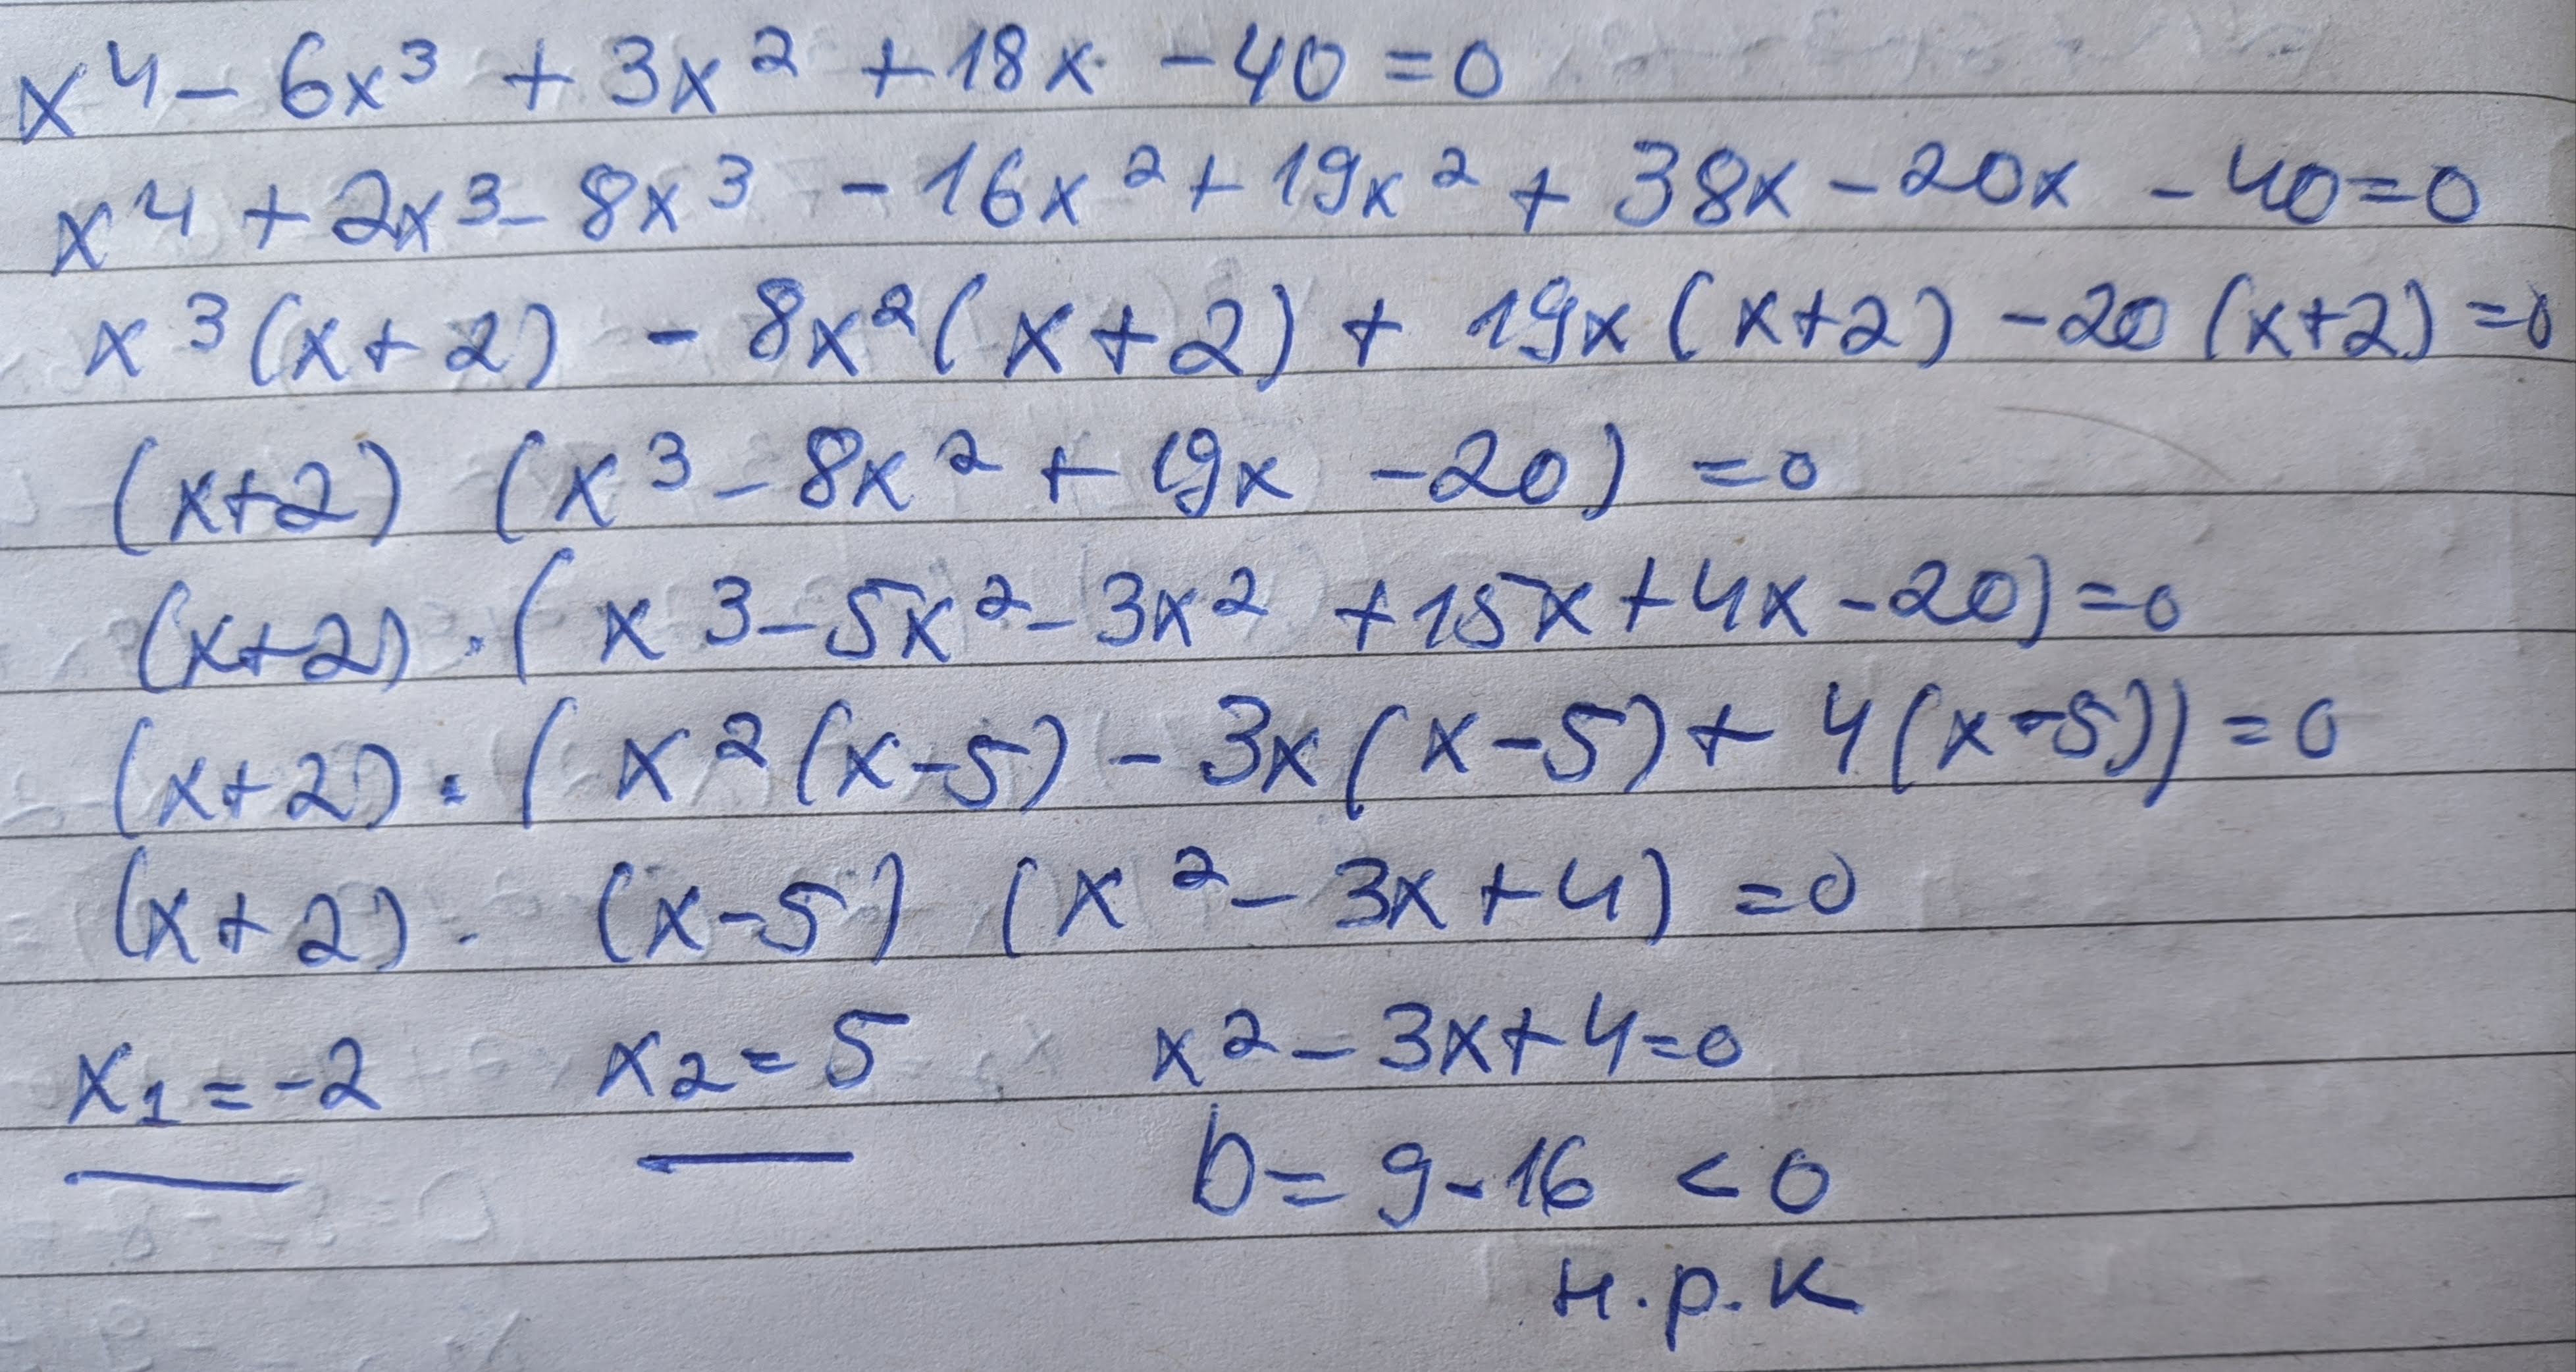 x⁴ - 6x³ + 3x² + 18x - 40 = 0
x⁴ + 2x³ - 8x³ - 16x² + 19x² + 38x - 20x - 40 = 0
x³(x+2) - 8x²(x+2) + 19x(x+2) - 20(x+2) = 0
(x+2) (x³ - 8x² + 19x - 20) = 0
(x+2) · (x³ - 5x² - 3x² + 15x + 4x - 20) = 0
(x+2) · (x²(x-5) - 3x(x-5) + 4(x-5)) = 0
(x+2) · (x-5) (x² - 3x + 4) = 0
x₁ = -2 x₂ = 5 x² - 3x + 4 = 0
D = 9 - 16 < 0
н.р.к